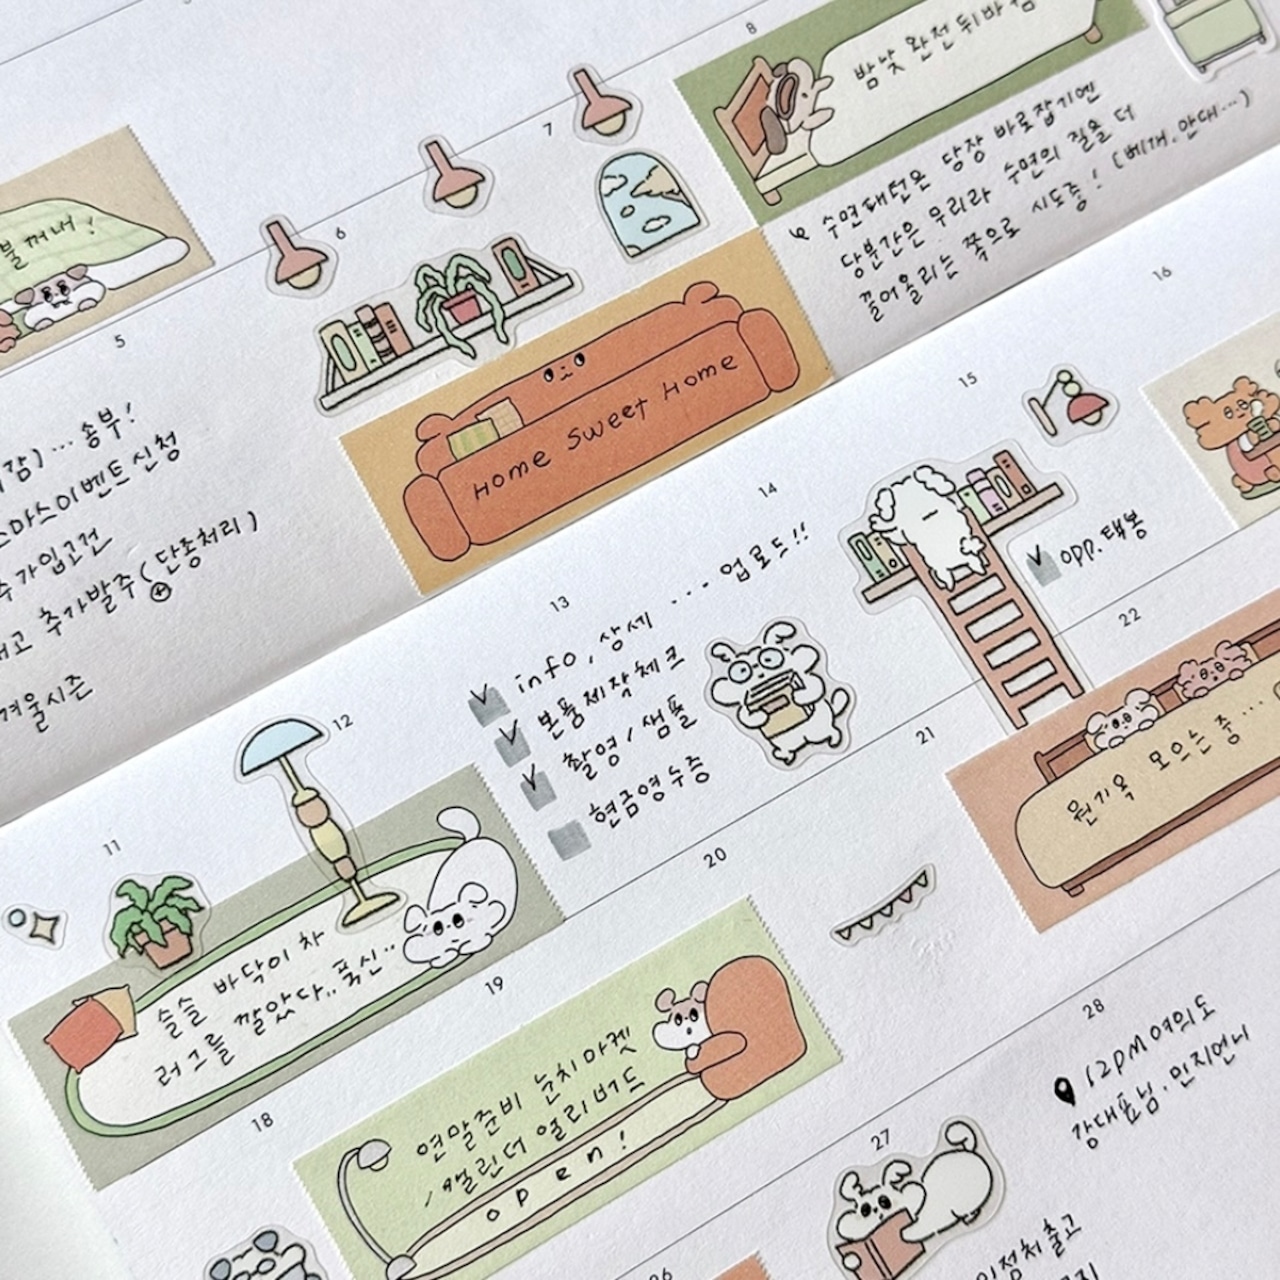 8
밤낮 완전 뒤바뀜
수면패턴은 당장 바로잡기엔
당분간은 무리라 수면의 질을 더
끌어올리는 쪽으로 시도중! (베개, 안대...)
7
6
불꺼내!
5
Home Sweet Home
... 송부!
이벤트 신청
가입고건
추가발주 (단종처리)
겨울시즌
16
15
opp. 택봉
14
13
info, 상세 ... 업로드!!
본품제작체크
촬영 / 샘플
현금영수증
12
11
슬슬 바닥이 차
러그를 깔았다.. 푹신..
22
원기옥 모으는 중...
21
20
19
연말준비 눈치마켓
캘린더 얼리버드
open!
18
28
12PM 여의도
강대표님. 민지언니
27
26